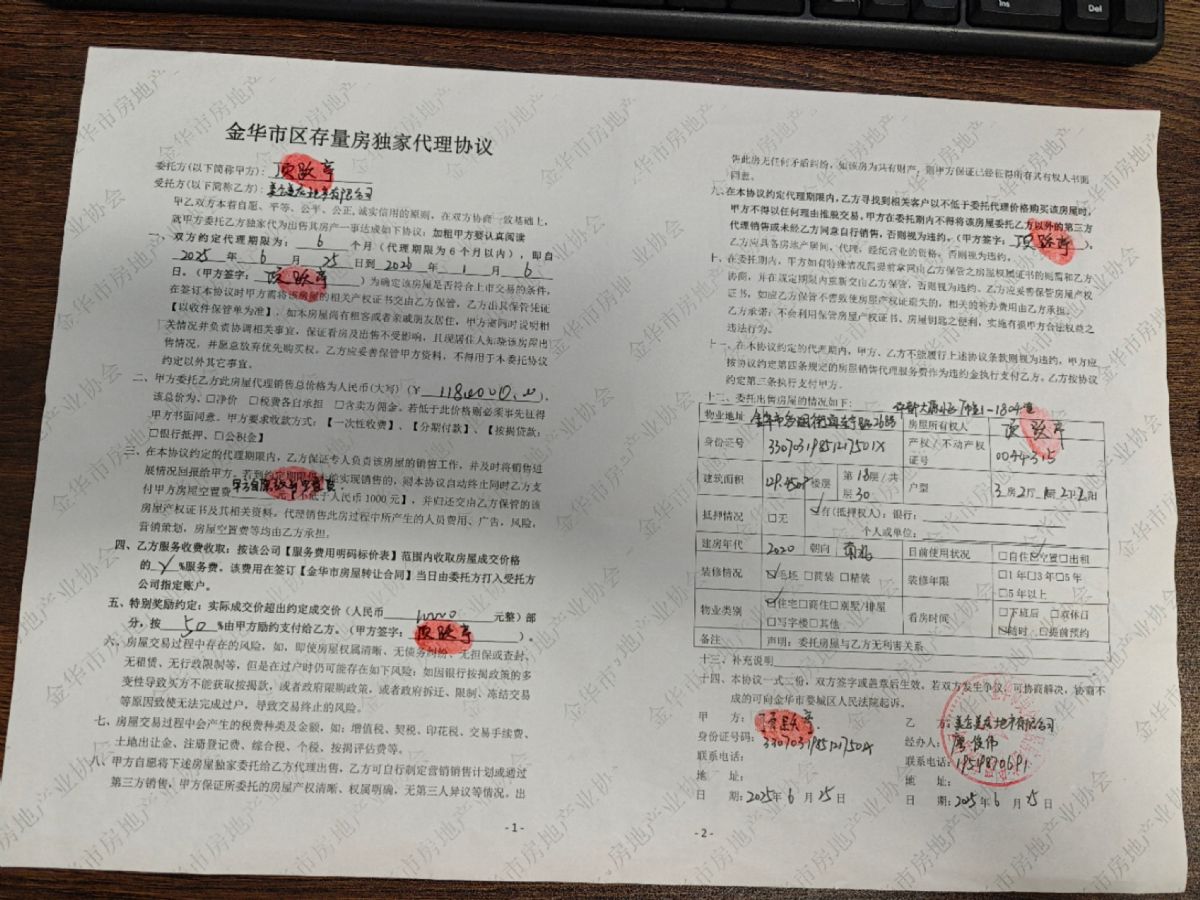 金华市区存量房独家代理协议
委托方(以下简称甲方):
受托方(以下简称乙方):
甲乙双方本着自愿、平等、公平、公正,诚实信用的原则,在双方协商一致基础上,
就甲方委托乙方独家代为出售其房产一事达成如下协议:如租甲方要认真阅读
一、双方约定代理期限为: 6 个月(代理期限为6个月以内),即自
2025 年 6 月 25 日到 2026 年 1 月 6
日。(甲方签字: )为确定该房屋是否符合上市交易的条件,
在签订本协议时甲方需将该房屋的相关产权证书交由乙方保管,乙方出具保管凭证
【以收件保管单为准】,如本房屋尚有租客或者亲戚朋友居住,甲方需同时说明相
关情况并负责协调相关事宜,保证看房及出售不受影响,且现居住人知晓该房屋出
售情况,并愿意放弃优先购买权。乙方应妥善保管甲方资料,不得用于本委托协议
约定以外其它事宜。
二、甲方委托乙方此房屋代理销售总价格为人民币(大写)(¥
该总价为、□净价 □税费各自承担 □含卖方佣金。若低于此价格则必须事先征得
甲方书面同意。甲方要求收款方式:【一次性收费】、【分期付款】、【按揭贷款:
□银行抵押、□公积金】
三、在本协议约定的代理期限内,乙方保证专人负责该房屋的销售工作,并及时将销售进
展情况回报给甲方。若到约定期限 实现销售的,则本协议自动终止同时乙方支
付甲方房屋空置费 不低于人民币1000元】,并归还交由乙方保管的该
房屋产权证书及其相关资料。代理销售此房过程中所产生的人员费用、广告,风险,
营销策划,房屋空置费等均由乙方承担。
四、乙方服务收费收取:按该公司【服务费用明码标价表】范围内收取房屋成交价格
的 %服务费。该费用在签订【金华市房屋转让合同】当日由委托方打入受托方
公司指定账户。
五、特别奖励约定:实际成交价超出约定成交价(人民币 元整)部
分,按 50 %由甲方励约支付给乙方。(甲方签字: )。
六、房屋交易过程中存在的风险,如,即使房屋权属清晰、无债务纠纷、无担保或查封、
无租赁、无行政限制等,但是在过户时仍可能存在如下风险:如因银行按揭政策的多
变性导致买方不能获取按揭款,或者政府限购政策,或者政府拆迁、限制、冻结交易
等原因致使无法完成过户,导致交易终止的风险。
七、房屋交易过程中会产生的税费种类及金额,如:增值税、契税、印花税、交易手续费、
土地出让金、注册登记费、综合税、个税、按揭评估费等。
八、甲方自愿将下述房屋独家委托给乙方代理出售,乙方可自行制定营销销售计划或通过
第三方销售,甲方保证所委托的房屋产权清晰、权属明确,无第三人异议等情况。出
- 1 -
售此房无任何矛盾纠纷,如该房为共有财产,则甲方保证已经征得所有共有权人书面
同意。
九、在本协议约定代理期限内,乙方寻找到相关客户以不低于委托代理价格购买该房屋时,
甲方不得以任何理由推脱交易。甲方在委托期内不得将该房屋委托乙方以外的第三方
代理销售或未经乙方同意自行销售,否则视为违约。(甲方签字: )。
乙方应具备房地产居间、代理,经纪营业的资格,否则视为违约。
十、在委托期内,甲方如有特殊情况需提前拿回由乙方保管之房屋权属证书的则需和乙方
协商,并在规定期限内重新交由乙方保管,否则视为违约。乙方应妥善保管房屋产权
证书,如应乙方保管不善致使房屋产权证遗失的,相关的补办费用由乙方承担。
乙方承诺:不会利用保管房屋产权证书、房屋钥匙之便利,实施有损甲方合法权益之
违法行为。
十一、在本协议约定的代理期内,甲方、乙方不能履行上述协议条款则视为违约,甲方应
按协议约定第四条规定的房屋销售代理服务费作为违约金执行支付乙方。乙方按协议
约定第三条执行支付甲方。
十二、委托出售房屋的情况如下:
物业地址 房屋所有权人
身份证号 33070319851217501X 产权/不动产权证号 0044315
建筑面积 楼层 第18层/共层30 户型 3房2厅1厨2卫2阳
抵押情况 □无 有(抵押权人):银行:
个人或单位:
建房年代 2020 朝向 日前使用状况 □自住□空置□出租
装修情况 毛坯 □简装 □精装 装修年限 □1年□3年□5年
□5年以上
物业类别 □住宅□商住□别墅/排屋 □写字楼□其他 看房时间 □下班后 □双休日
□随时 □提前预约
备注 声明:委托房屋与乙方无利害关系
十三、补充说明
十四、本协议一式二份,双方签字或盖章后生效。若双方发生争议,可协商解决,协商不
成的可向金华市婺城区人民法院起诉。
甲 方: 乙 方:
身份证号码: 33070319851217501X 经办人:
联系电话: 联系电话: 1959870691
地 址: 地 址:
日 期: 2025年 6 月 25日 日 期: 2025年 6 月 25日
- 2 -